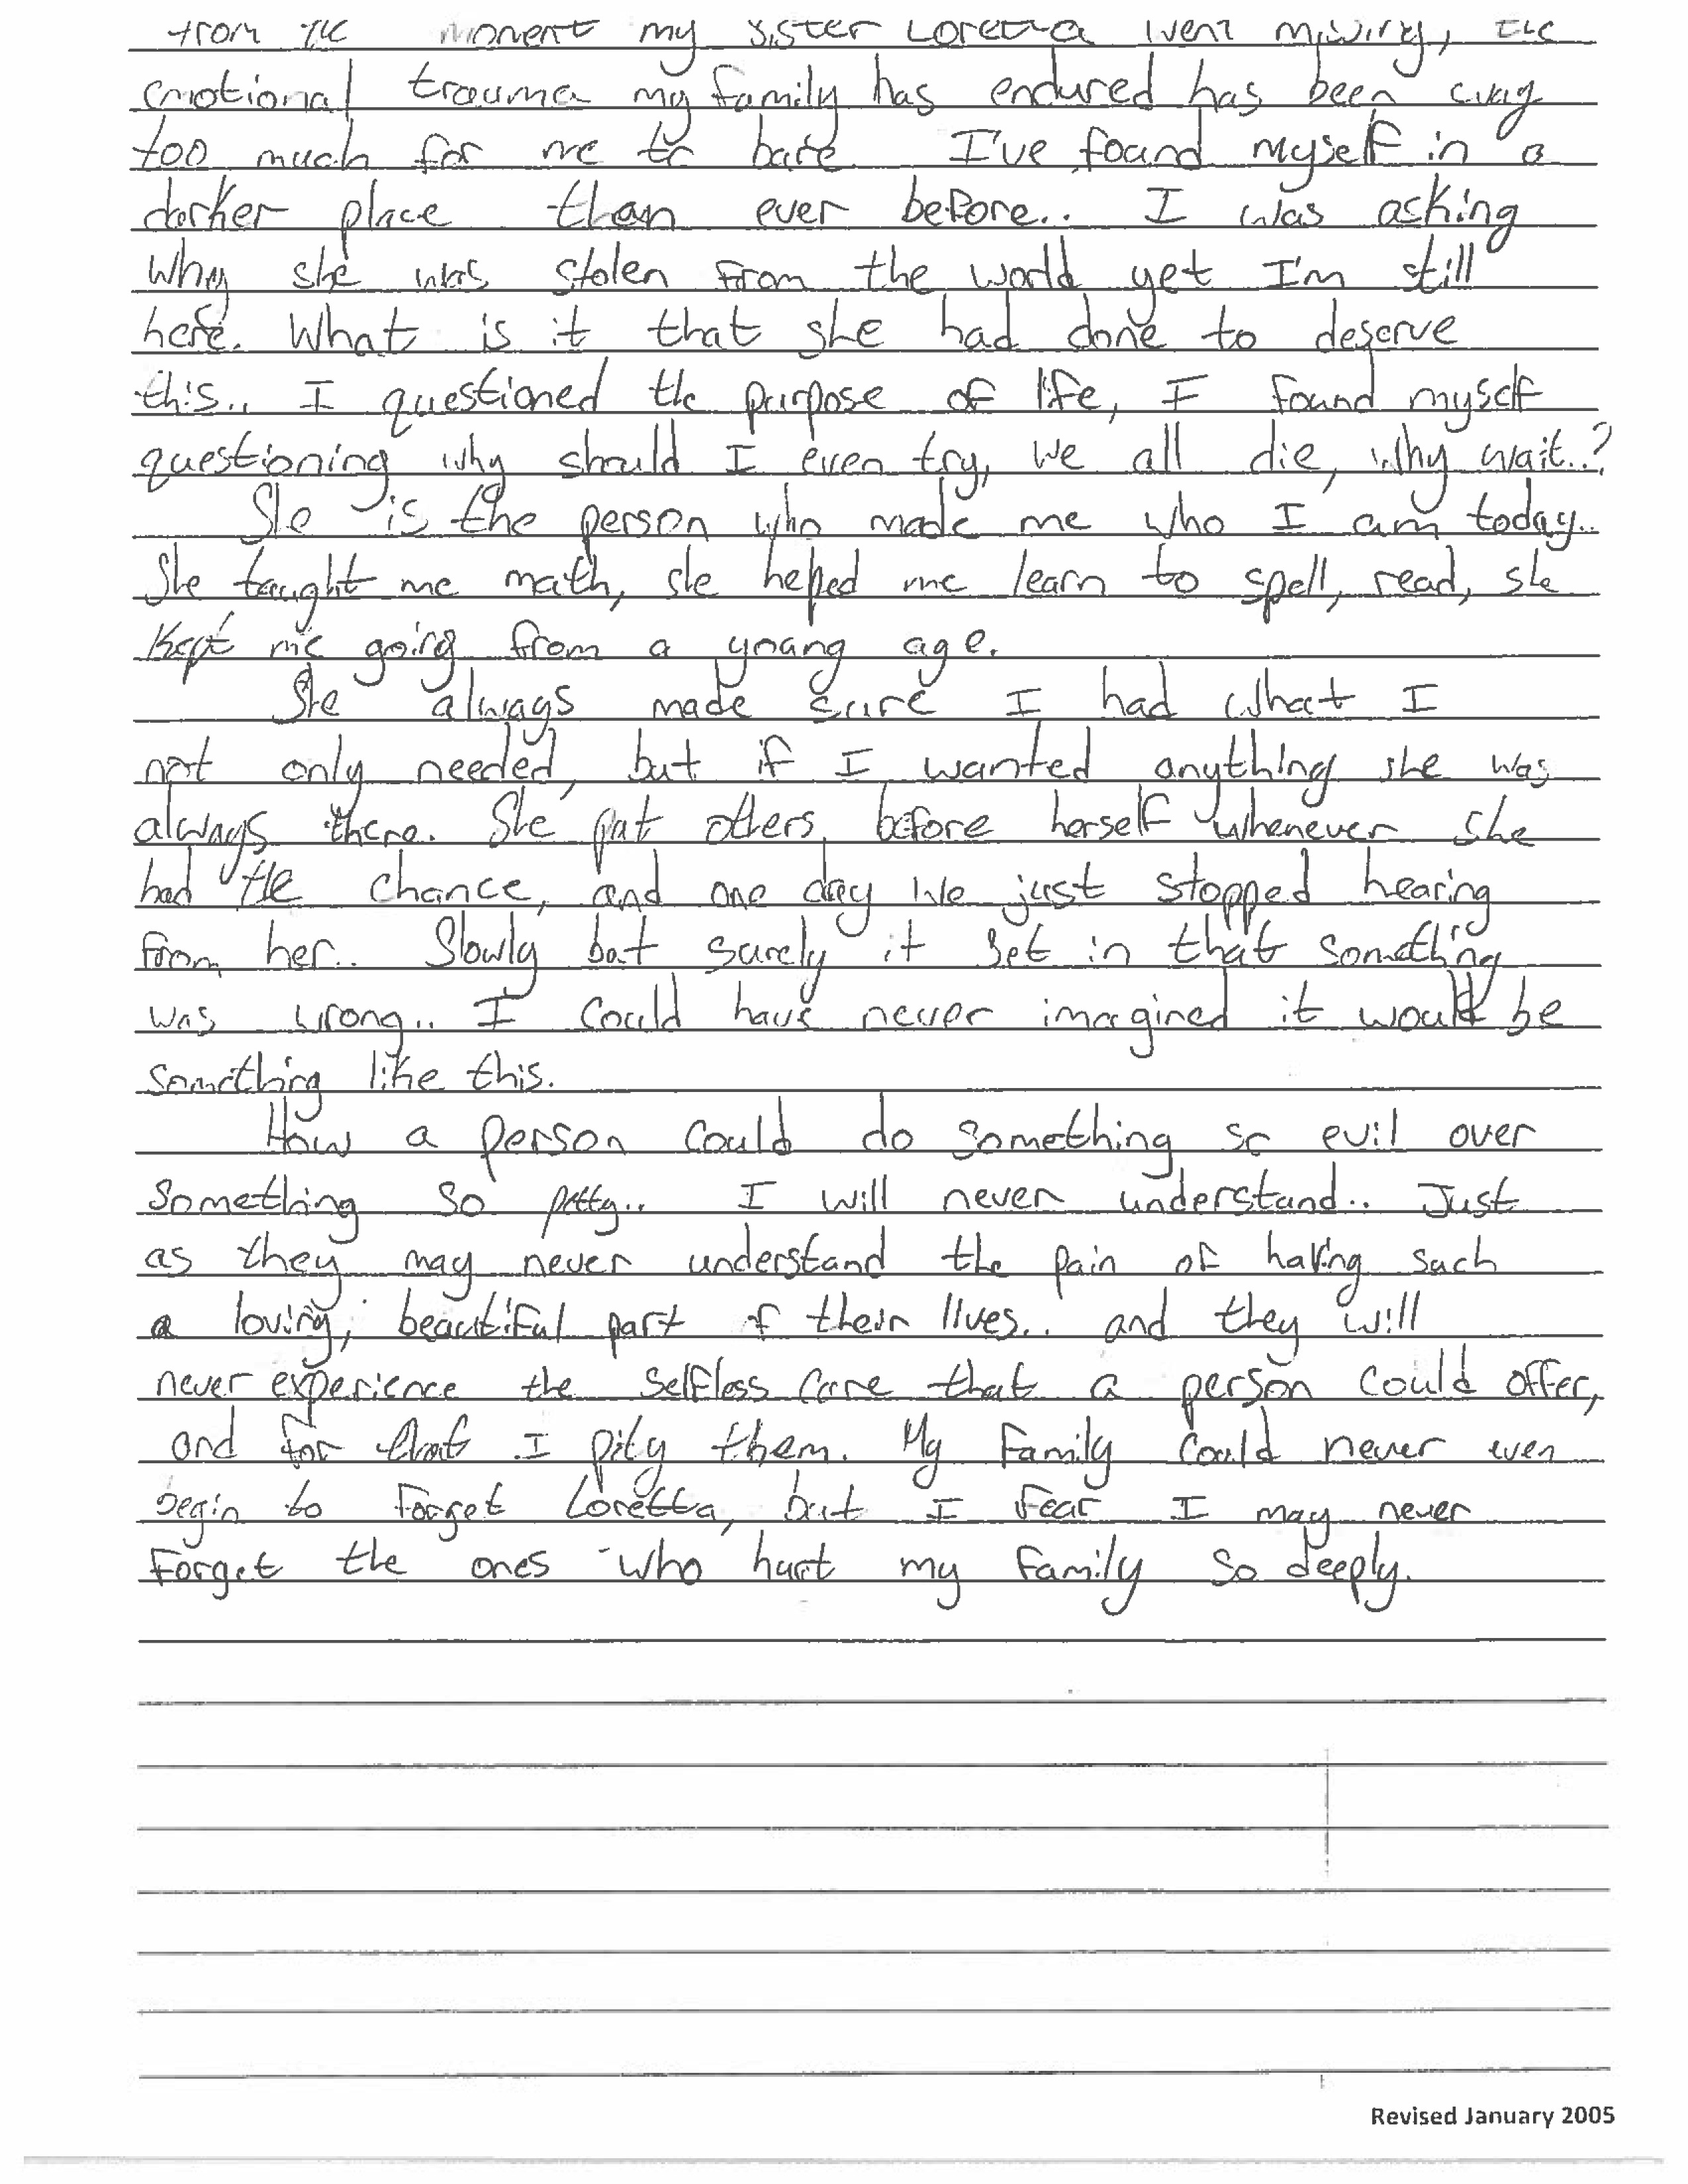 from the moment my sister Loretta went missing, the
emotional trauma my family has endured has been way
too much for me to bare. I've found myself in a
darker place than ever before.. I was asking
why she was stolen from the world yet I'm still
here. What is it that she had done to deserve
this.. I questioned the purpose of life, I found myself
questioning why should I even try, we all die, why wait..?
She is the person who made me who I am today..
She taught me math, she helped me learn to spell, read, she
kept me going from a young age.
She always made sure I had what I
not only needed, but if I wanted anything she was
always there. She put others before herself whenever she
had the chance, and one day we just stopped hearing
from her.. Slowly but surely it set in that something
was wrong.. I could have never imagined it would be
something like this.
How a person could do something so evil over
something so petty.. I will never understand.. Just
as they may never understand the pain of having such
a loving, beautiful part of their lives.. and they will
never experience the selfless care that a person could offer,
and for that I pity them. My family could never even
begin to forget Loretta, but I fear I may never
forget the ones who hurt my family so deeply.
Revised January 2005